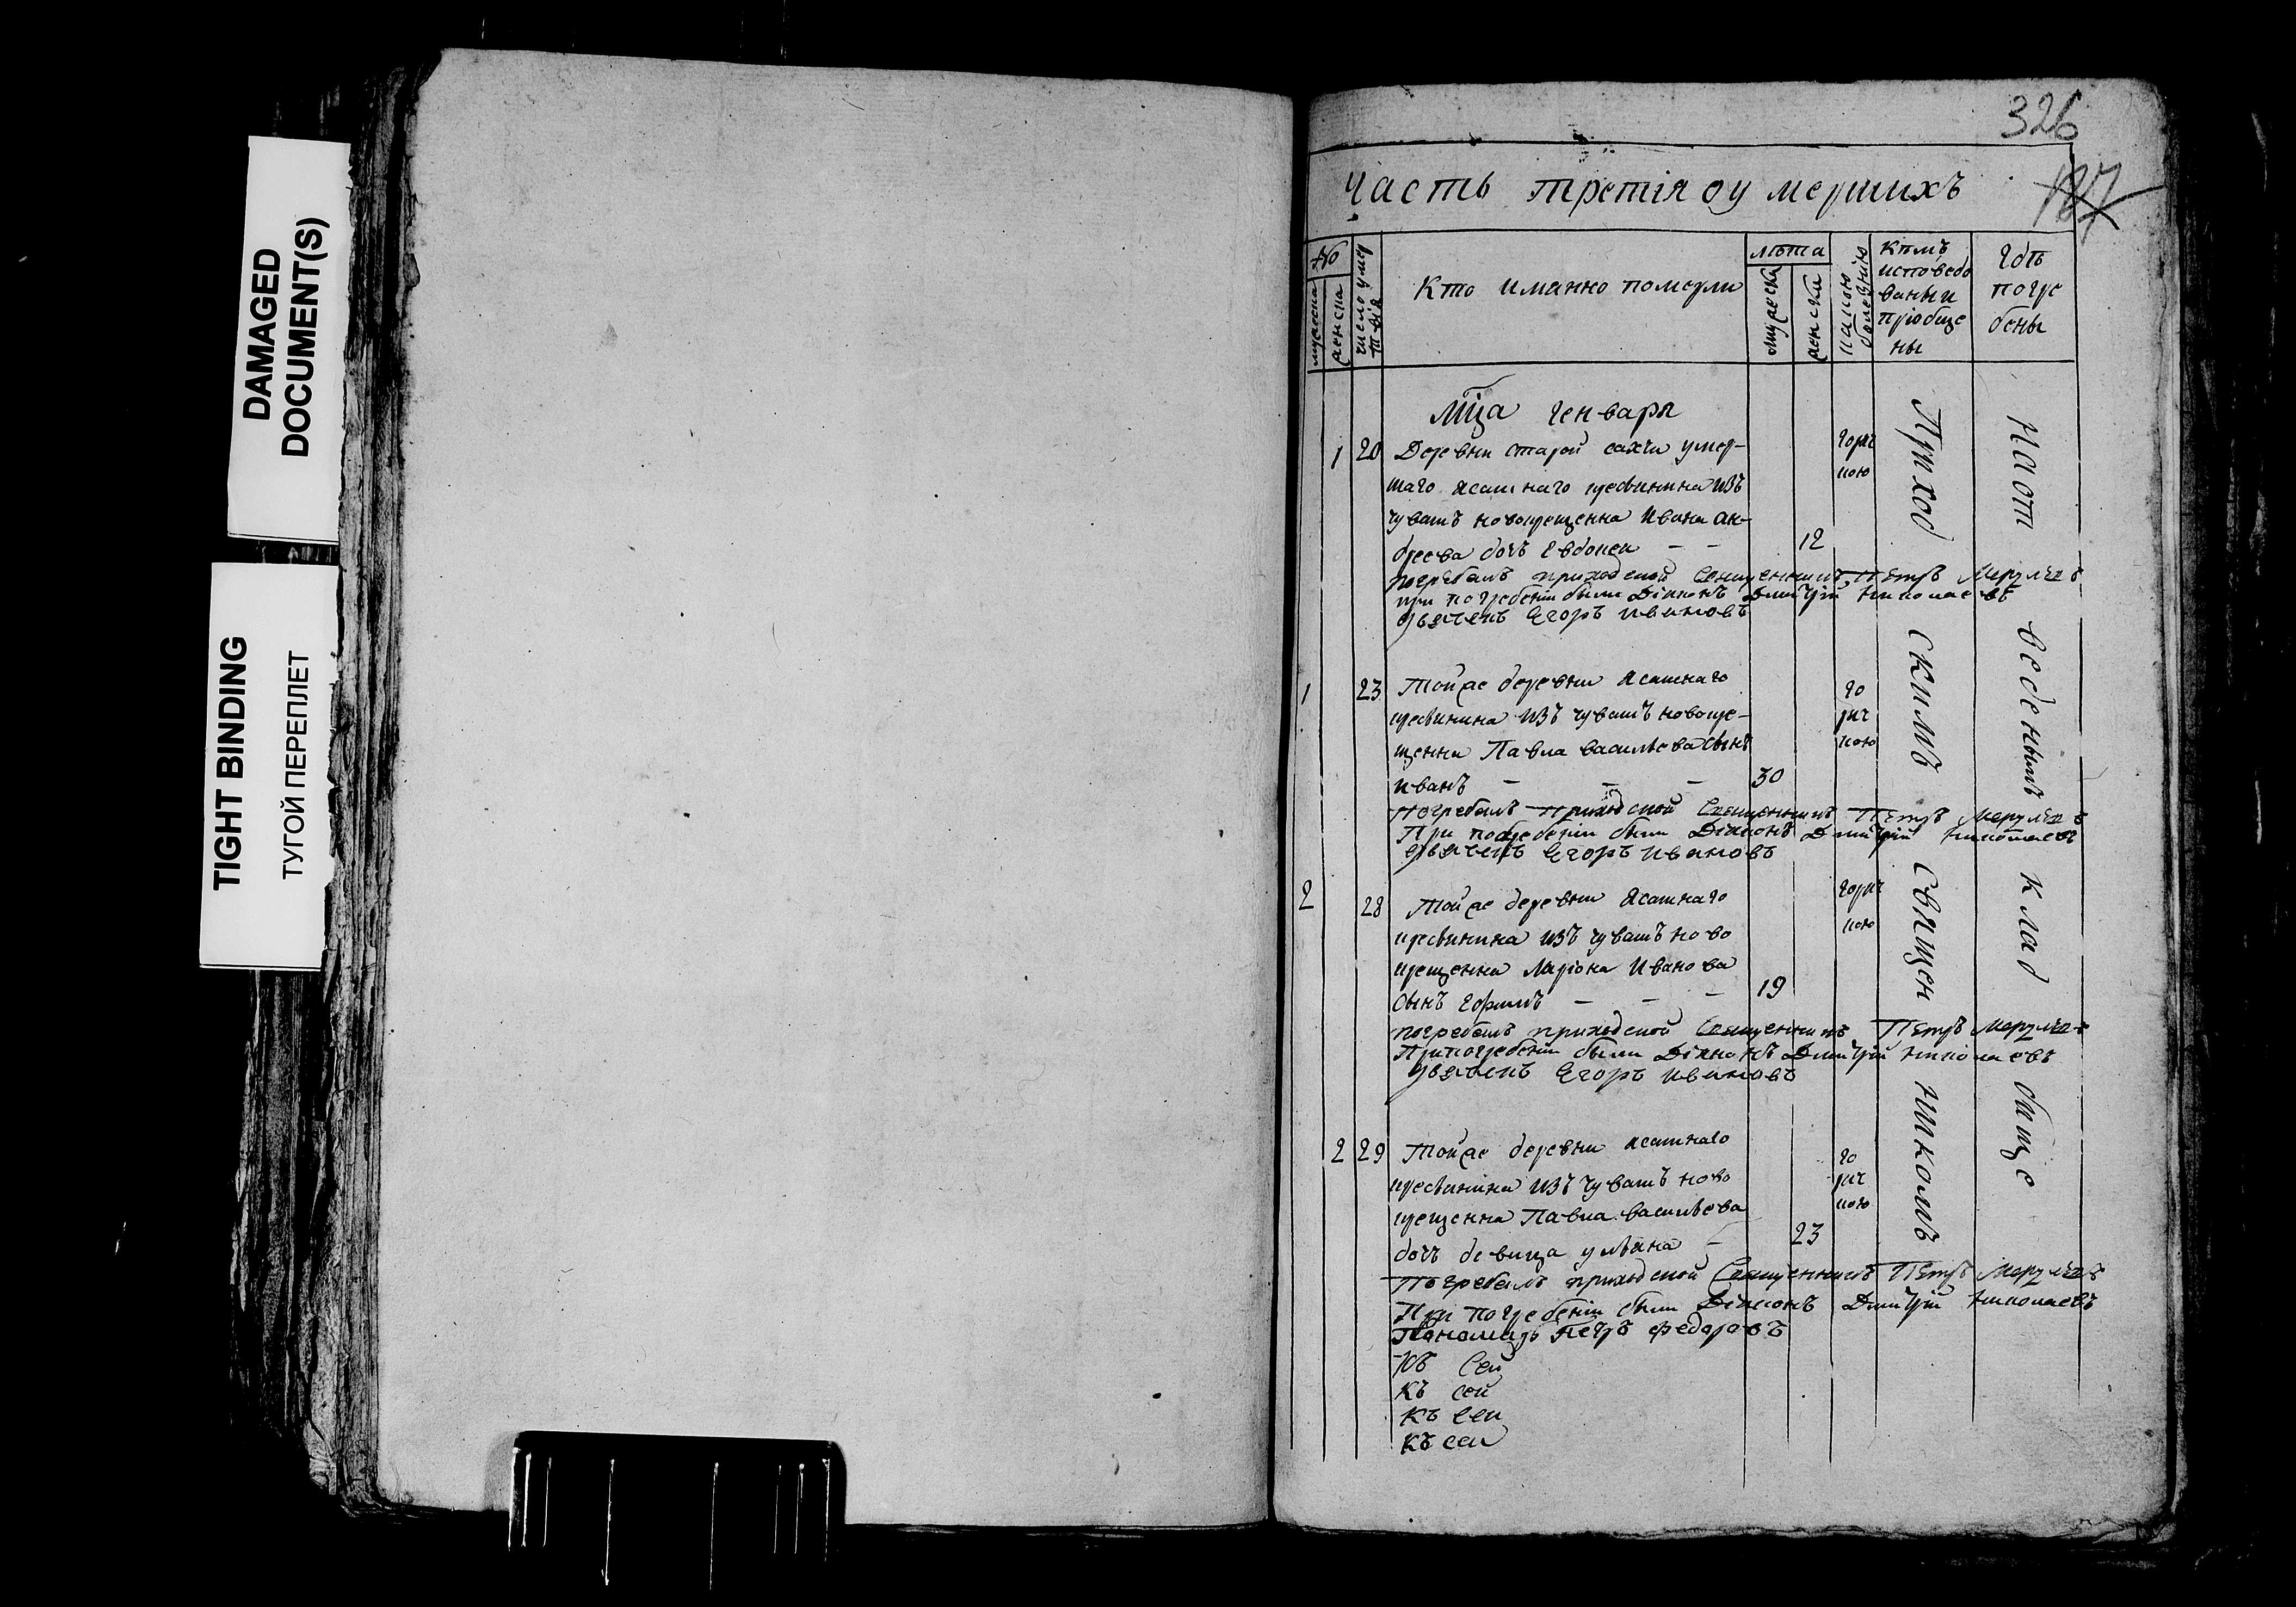 DAMAGED
DOCUMENT(S)
TIGHT BINDING
ТУГОЙ ПЕРЕПЛЕТ
326
Часть третiя оу мершихъ
№
мужеска
женска
число умер
твiя
Кто иманно померли
лѣта
мужеска
женска
какою
болезнiю
кѣмъ
исповедо
ваны и
прiобще
ны
гдѣ
погре
бены
Мца генваря
1 20 Деревни старой сахчи умер-
шаго ясашнаго крестьянина изъ
чувашъ новокрещенна Ивана ан-
дреева дочь Евдокея — — 12
горяч
кою
погребалъ приходской Священникъ Петръ
при погребенiи были Дiаконъ Дмитрiй Николаевъ
дьячекъ Егоръ Ивановъ
1 23 Тойже деревни ясашнаго
крестьянина изъ чувашъ новокре-
щенна Павла васильева сынъ
иванъ — — — 30
го
ряч
кою
Погребалъ Приходской Священникъ Петръ
При погребенiи были Дiаконъ Дмитрiй Николаевъ
дьячекъ Егоръ Ивановъ
2 28 Тойже деревни ясашнаго
крестьянина изъ чувашъ ново
крещенна Ларiона Иванова
сынъ Ефимъ — — — 19
горяч
кою
погребалъ приходской Священникъ Петръ
При погребенiи были Дiаконъ Дмитрiй Николаевъ
дьячекъ Егоръ Ивановъ
2 29 Тойже деревни ясашнаго
крестьянина изъ чувашъ ново
крещенна Павла васильева
дочь девица ульяна — 23
го
ряч
кою
Погребалъ приходской Священникъ Петръ
При погребенiи были Дiаконъ Дмитрiй Николаевъ
Пономарь Петръ Федоровъ
Къ Сей
Къ сей
Къ сей
Къ сей
Приход скимъ священ никомъ
На от веденымъ клад бище